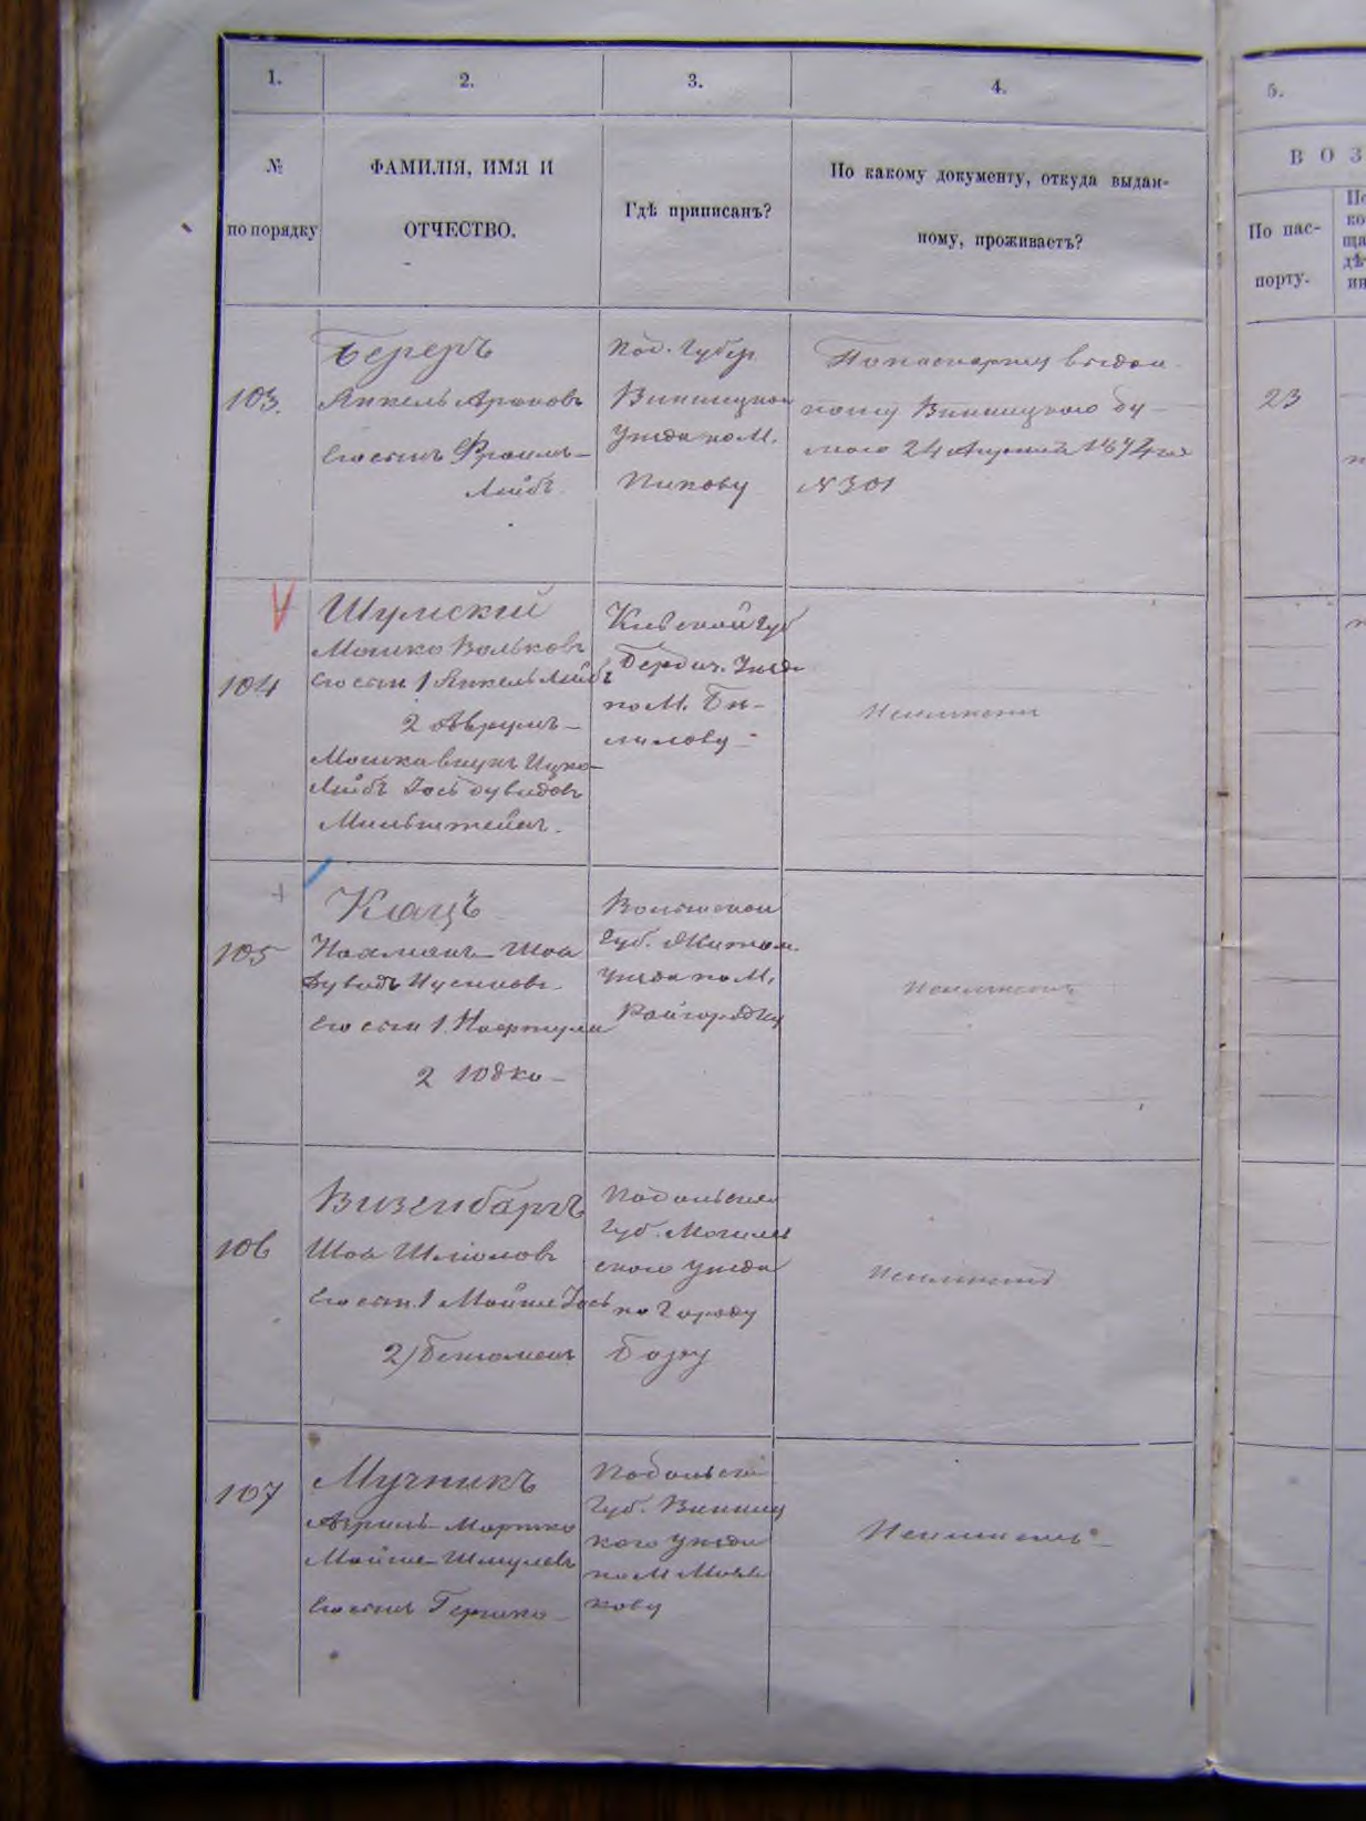 1. 2. 3. 4. 5.
№ по порядку
ФАМИЛІЯ, ИМЯ И
ОТЧЕСТВО.
Гдѣ приписанъ?
По какому документу, откуда выдан-
ному, проживаетъ?
В О З
По пас-
порту.
103.
Береръ
Янкель Ароновъ
Его сынъ Фроимъ-
Лейбъ
Под. Губер
Винницкой
Уѣзда по М.
Пикову
По паспорту выдан
ному Винницкого
24 Апрѣля 1874 го
№ 301
23
104
Шумскій
Мошко Вольковъ
Его сын. 1 Янкель Лейбъ
2 Аврумъ-
Мошка внукъ Ицко-
Лейбъ Іось Дувидовъ
Мильштейнъ.
Кіевской Губ
Бердич. Уѣзда
по М. Би-
лилову
Неимѣетъ
105
Кацъ
Нахманъ-Шоа
Дувидъ Иусиповъ
Его сын 1.
2 Юдко-
Волынской
Губ. Житом.
Уѣзда по М.
Райгородку
Неимѣетъ
106
Визенбаргъ
Шоа Шліомовъ
Его сын. 1 Мойше Іось
2) Беніоминъ
Подольской
Губ. Могилев
ского Уѣзда
по Городу
Бару
Неимѣетъ
107
Мучникъ
Аврумъ-Мортко
Мойше-Шмулевъ
Его сынъ Гершко-
Подольской
Губ. Винниц
кого Уѣзда
по М.
кову
Неимѣетъ